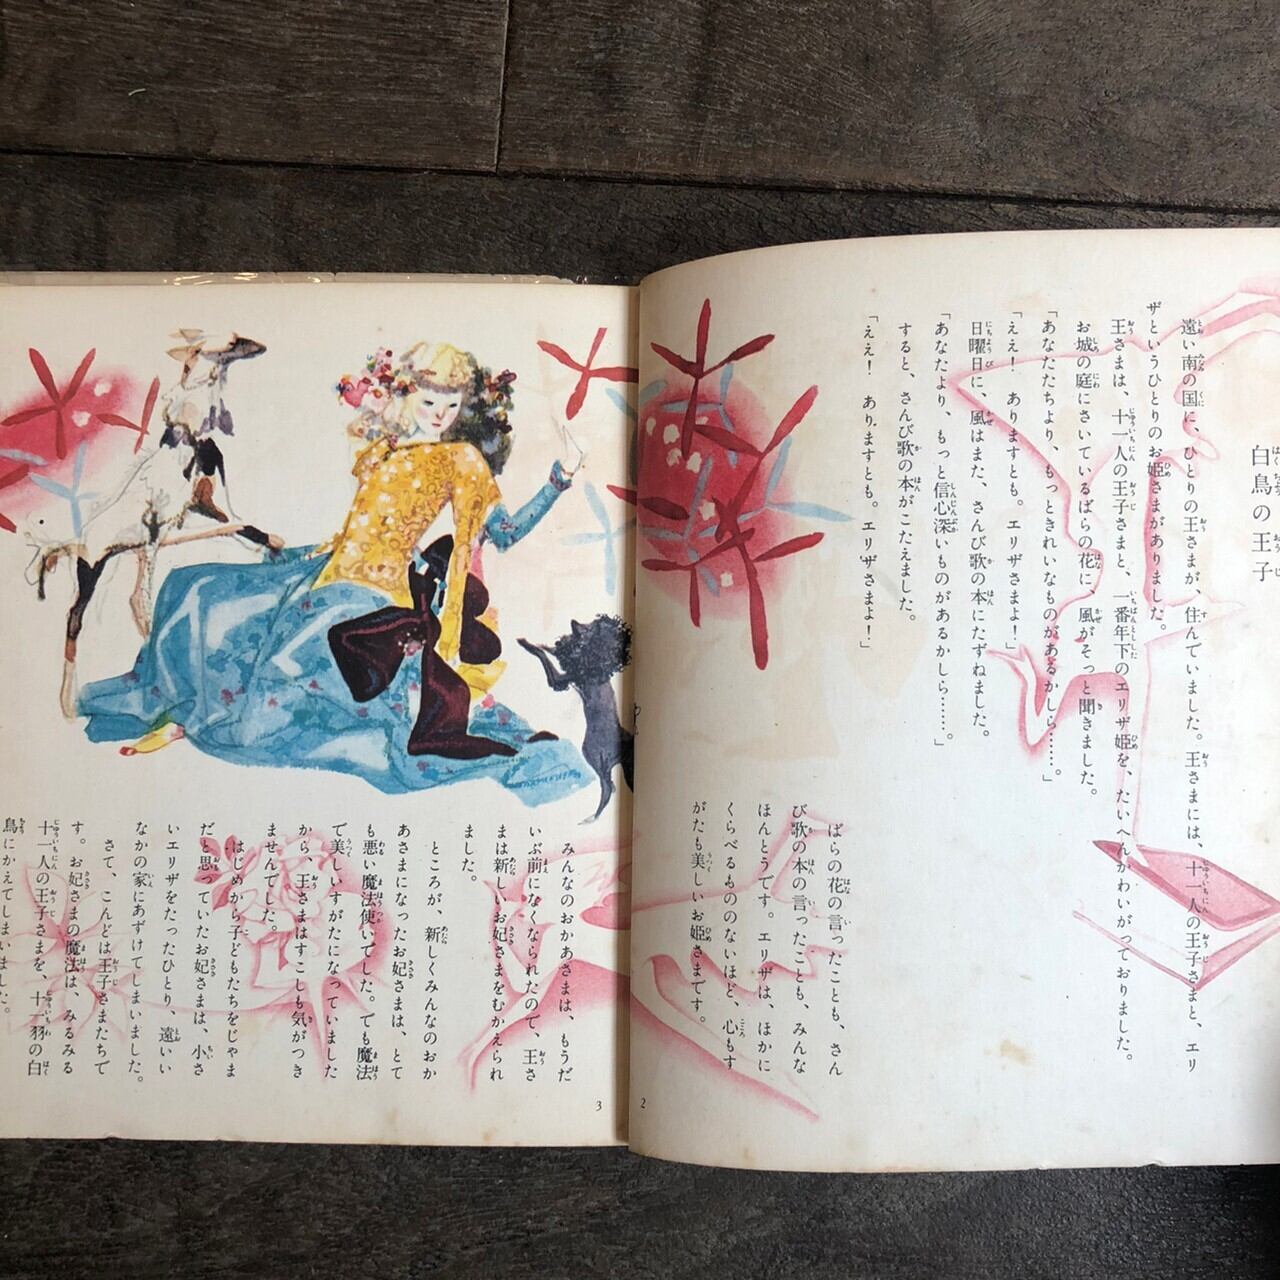 白鳥の王子
遠い南の国に、ひとりの王さまが、住んでいました。王さまには、十一人の王子さまと、エリ
ザというひとりのお姫さまがありました。
王さまは、十一人の王子さまと、一番年下のエリザ姫を、たいへんかわいがっておりました。
お城の庭にさいているばらの花に、風がそっと聞きました。
「あなたたちより、もっときれいなものがあるかしら……。」
「ええ！　ありますとも。エリザさまよ！」
日曜日に、風はまた、さんび歌の本にたずねました。
「あなたより、もっと信心深いものがあるかしら……。」
すると、さんび歌の本がこたえました。
「ええ！　ありますとも。エリザさまよ！」
ばらの花の言ったことも、さん
び歌の本の言ったことも、みんな
ほんとうです。エリザは、ほかに
くらべるもののないほど、心もす
がたも美しいお姫さまです。
2
みんなのおかあさまは、もうだ
いぶ前になくなられたので、王さ
まは新しいお妃さまをむかえられ
ました。
ところが、新しくみんなのおか
あさまになったお妃さまは、とて
も悪い魔法使いでした。でも魔法
で美しいすがたになっていました
から、王さまはすこしも気がつき
ませんでした。
はじめから子どもたちをじゃま
だと思っていたお妃さまは、小さ
いエリザをたったひとり、遠いい
なかの家にあずけてしまいました。
さて、こんどは王子さまたちで
す。お妃さまの魔法は、みるみる
十一人の王子さまを、十一羽の白
鳥にかえてしまいました。
3